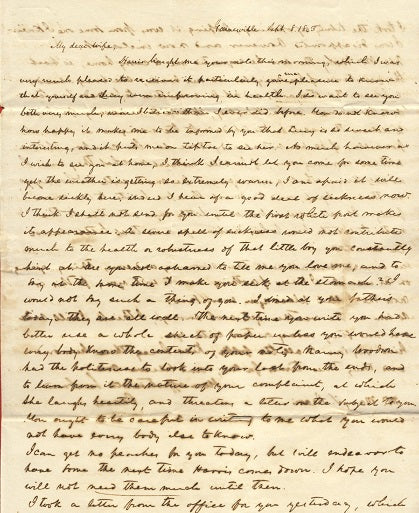 Gainesville Sept. 8. 18
My dear wife,
brought me your note this morning, which I was
very much pleased to receive it particularly, gave me pleasure to know
that yourself and are improving in health. I do want to see you
both very much, more I believe than I ever did before. You do not know
how happy it makes me to be informed by you that is so sweet and
interesting, and it puts me on tiptoe to see her. As much however as
I wish to see you at home, I think I cannot let you come for some time
yet. the weather is getting so extremely warm, I am afraid it will
become sickly here, indeed I hear of a good deal of sickness now.
I think I shall not send for you until the first frost make
its appearance. A severe spell of sickness would not contribute
much to the health or robustness of that little boy you constantly
hint at. Are you not ashamed to tell me you love me, and to
say at the same time I make you sick at the stomach. I
would not say such a thing of you. I dined at your father's
today, they are all well. The next time you write you had
better use a whole sheet of paper unless you would have
every body know the contents of your note. Nancy Woodson
had the politeness to look into your last from the ends, and
to learn from it the nature of your complaint, at which
she laughs heartily, and threatens a letter on the subject to you
You ought to be careful in writing to me what you would
not have every body else to know.
I can get no peaches for you today, but will endeavor to
have some the next time Harris comes down. I hope you
will not need them much until then.
I took a letter from the office for you yesterday, which